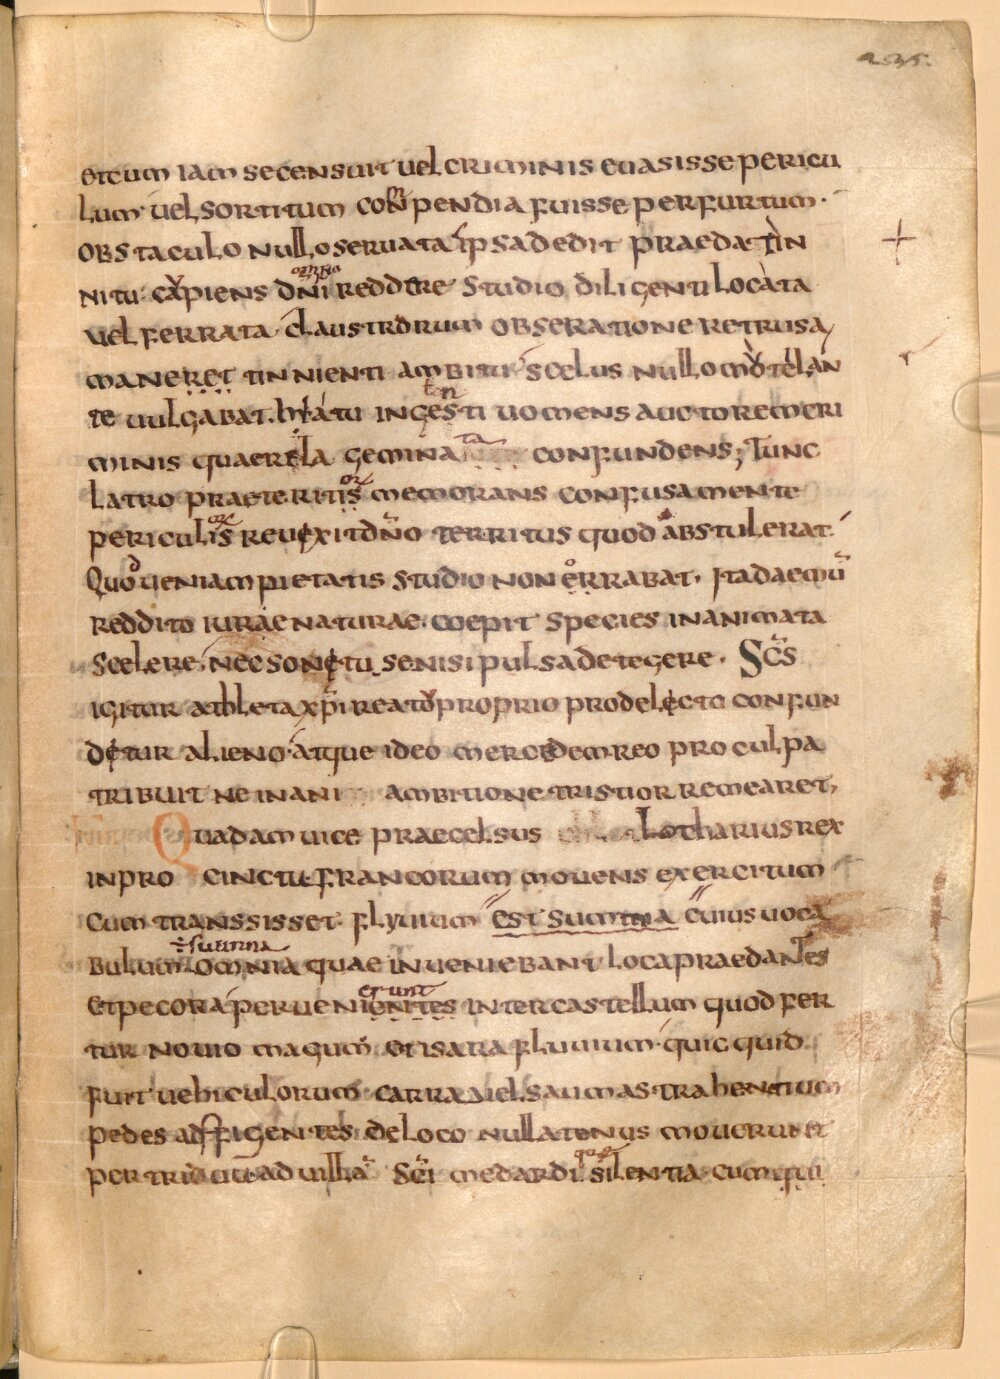 235.
et cum iam se censuit vel criminis euasisse pericu
lum· uel sortitum conpendia fuisse per furtum·
obstaculo nullo seruata ipsa dedit praeda tin
nitu· capiens dni reddere studio diligenti locata
uel ferrata claustrorum obseratione retrusa
maneret tinnienti ambitu scelus nullo mo telan
te uulgabat. hiatu ingesti uomens auctorem cri
minis quaerela gemina ta confundens; Tunc
latro praeteritis memorans confusa mente
periculis reuexit dno territus quod abstulerat.
Quo ueniam pietatis studio non errabat. Ita daemū
reddito iurae naturae. coepit species inanimata
scelere. nec sonitu se nisi pulsa detegere. Scs
igitur athleta xpi reatu proprio pro delecto confun
detur alieno. atque ideo mercedem reo pro culpa
tribuit ne inani ambitione tristior remearet,
Quadam uice praecelsus Lotharius rex
in pro cinctu francorum mouens exercitum
cum transsisset fluuium est summa cuius uoca
÷ summa
bulum omnia quae inueniebant loca praedantes
et pecora peruenientes inter castellum quod fer
erunt
tur nouio magum et isara fluuium quic quid
fuit uehiculorum carra uel saumas trahentium
pedes adffigentes de loco nullatenus mouerunt
per triduum ad uillā Sci medardi silentia cum qui